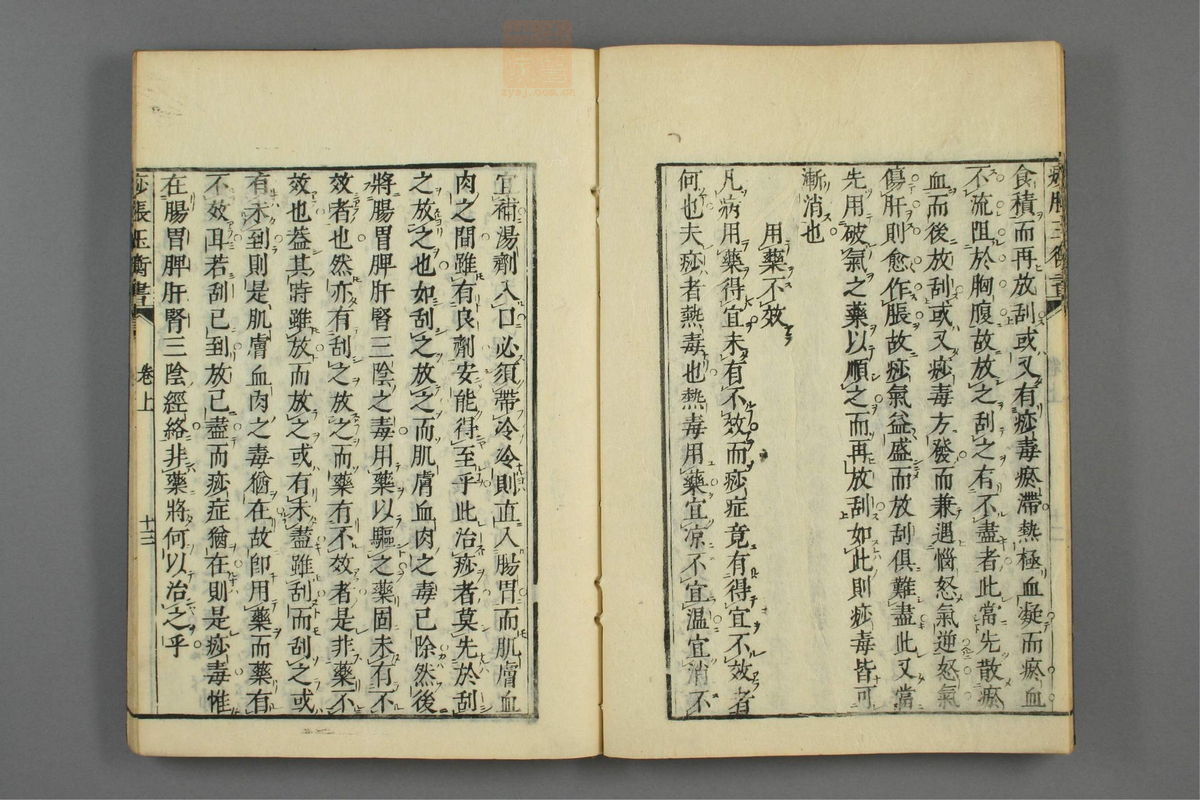 食積而再放刮或又有痧毒瘀滯熱極血凝而瘀血
不流阻於胸腹故放之刮之有不盡者此當先散瘀
血而後放刮或又痧毒方發而兼遇惱怒氣逆怒氣
傷肝則愈作脹故痧氣益盛而放刮俱難盡此又當
先用破氣之藥以順之而再放刮如此則痧毒皆可
漸消也
用藥不效
凡病用藥得宜未有不效而痧症竟有得宜不效者
何也夫痧者熱毒也熱毒用藥宜凉不宜温宜消不
宜補湯劑入口必須帶冷冷則直入腸胃而肌膚血
肉之間雖有良劑安能得至乎此治痧者莫先於刮
之放之也如刮之放之而肌膚血肉之毒已除然後
將腸胃脾肝腎三陰之毒用藥以驅之藥固未有不
效者也然亦有刮之放之而藥有不效者是非藥不
效也葢其時雖放而放之或有未盡雖刮而刮之或
有未到則是肌膚血肉之毒猶在故卽用藥而藥有
不效耳若刮已到放已盡而痧症猶在則是痧毒惟
在腸胃脾肝腎三陰經絡非藥將何以治之乎
痧脹玉衡書
卷上
十三
zysj.com.cn